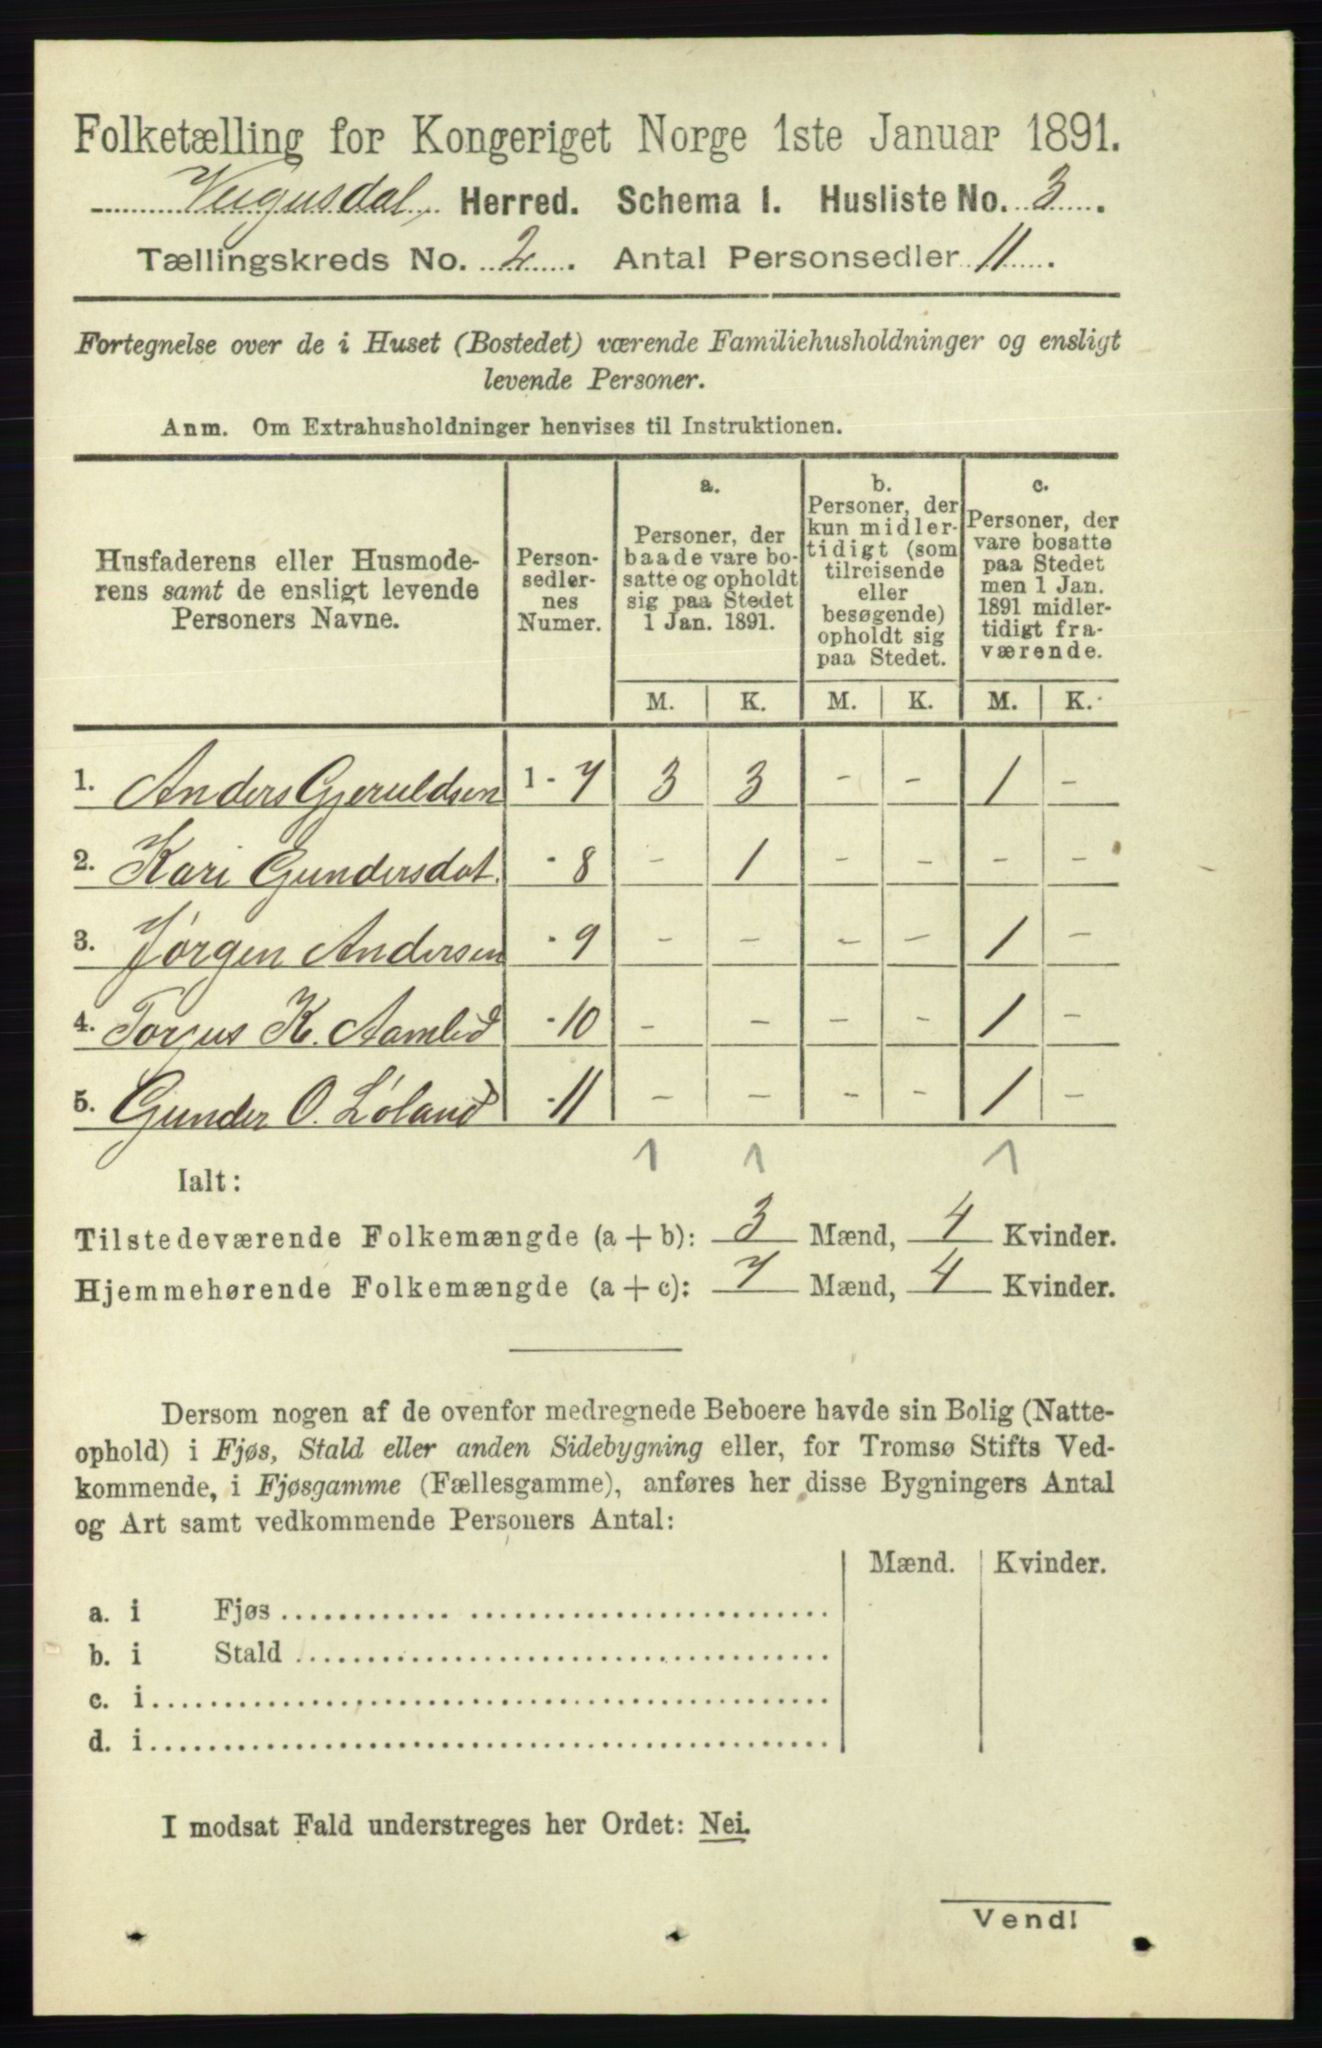 Folketælling for Kongeriget Norge 1ste Januar 1891.
Veigusdal Herred. Schema I. Husliste No. 3.
Tællingskreds No. 2. Antal Personsedler 11.
Fortegnelse over de i Huset (Bostedet) værende Familiehusholdninger og ensligt
levende Personer.
Anm. Om Extrahusholdninger henvises til Instruktionen.
Husfaderens eller Husmode-
rens samt de ensligt levende
Personers Navne.
Person-
sedler-
nes
Numer.
a.
Personer, der
baade vare bo-
satte og opholdt
sig paa Stedet
1 Jan. 1891.
b.
Personer, der
kun midler-
tidigt (som
tilreisende
eller
besøgende)
opholdt sig
paa Stedet.
c.
Personer, der
vare bosatte
paa Stedet
men 1 Jan.
1891 midler-
tidigt fra-
værende.
M. K. M. K. M. K.
1. Anders Gjeruldsen 1 - 7 3 3 - - 1 -
2. Kari Gundersdat. - 8 - 1 - - - -
3. Jørgen Andersen - 9 - - - - 1 -
4. Torjus K. Aamlid - 10 - - - - 1 -
5. Gunder O. Løland - 11 - - - - 1 -
1 1 1
Ialt:
Tilstedeværende Folkemængde (a + b): 3 Mænd, 4 Kvinder.
Hjemmehørende Folkemængde (a + c): 7 Mænd, 4 Kvinder.
Dersom nogen af de ovenfor medregnede Beboere havde sin Bolig (Natte-
ophold) i Fjøs, Stald eller anden Sidebygning eller, for Tromsø Stifts Ved-
kommende, i Fjøsgamme (Fællesgamme), anføres her disse Bygningers Antal
og Art samt vedkommende Personers Antal:
Mænd. Kvinder.
a. i Fjøs
b. i Stald
c. i
d. i
I modsat Fald understreges her Ordet: Nei.
Vend!